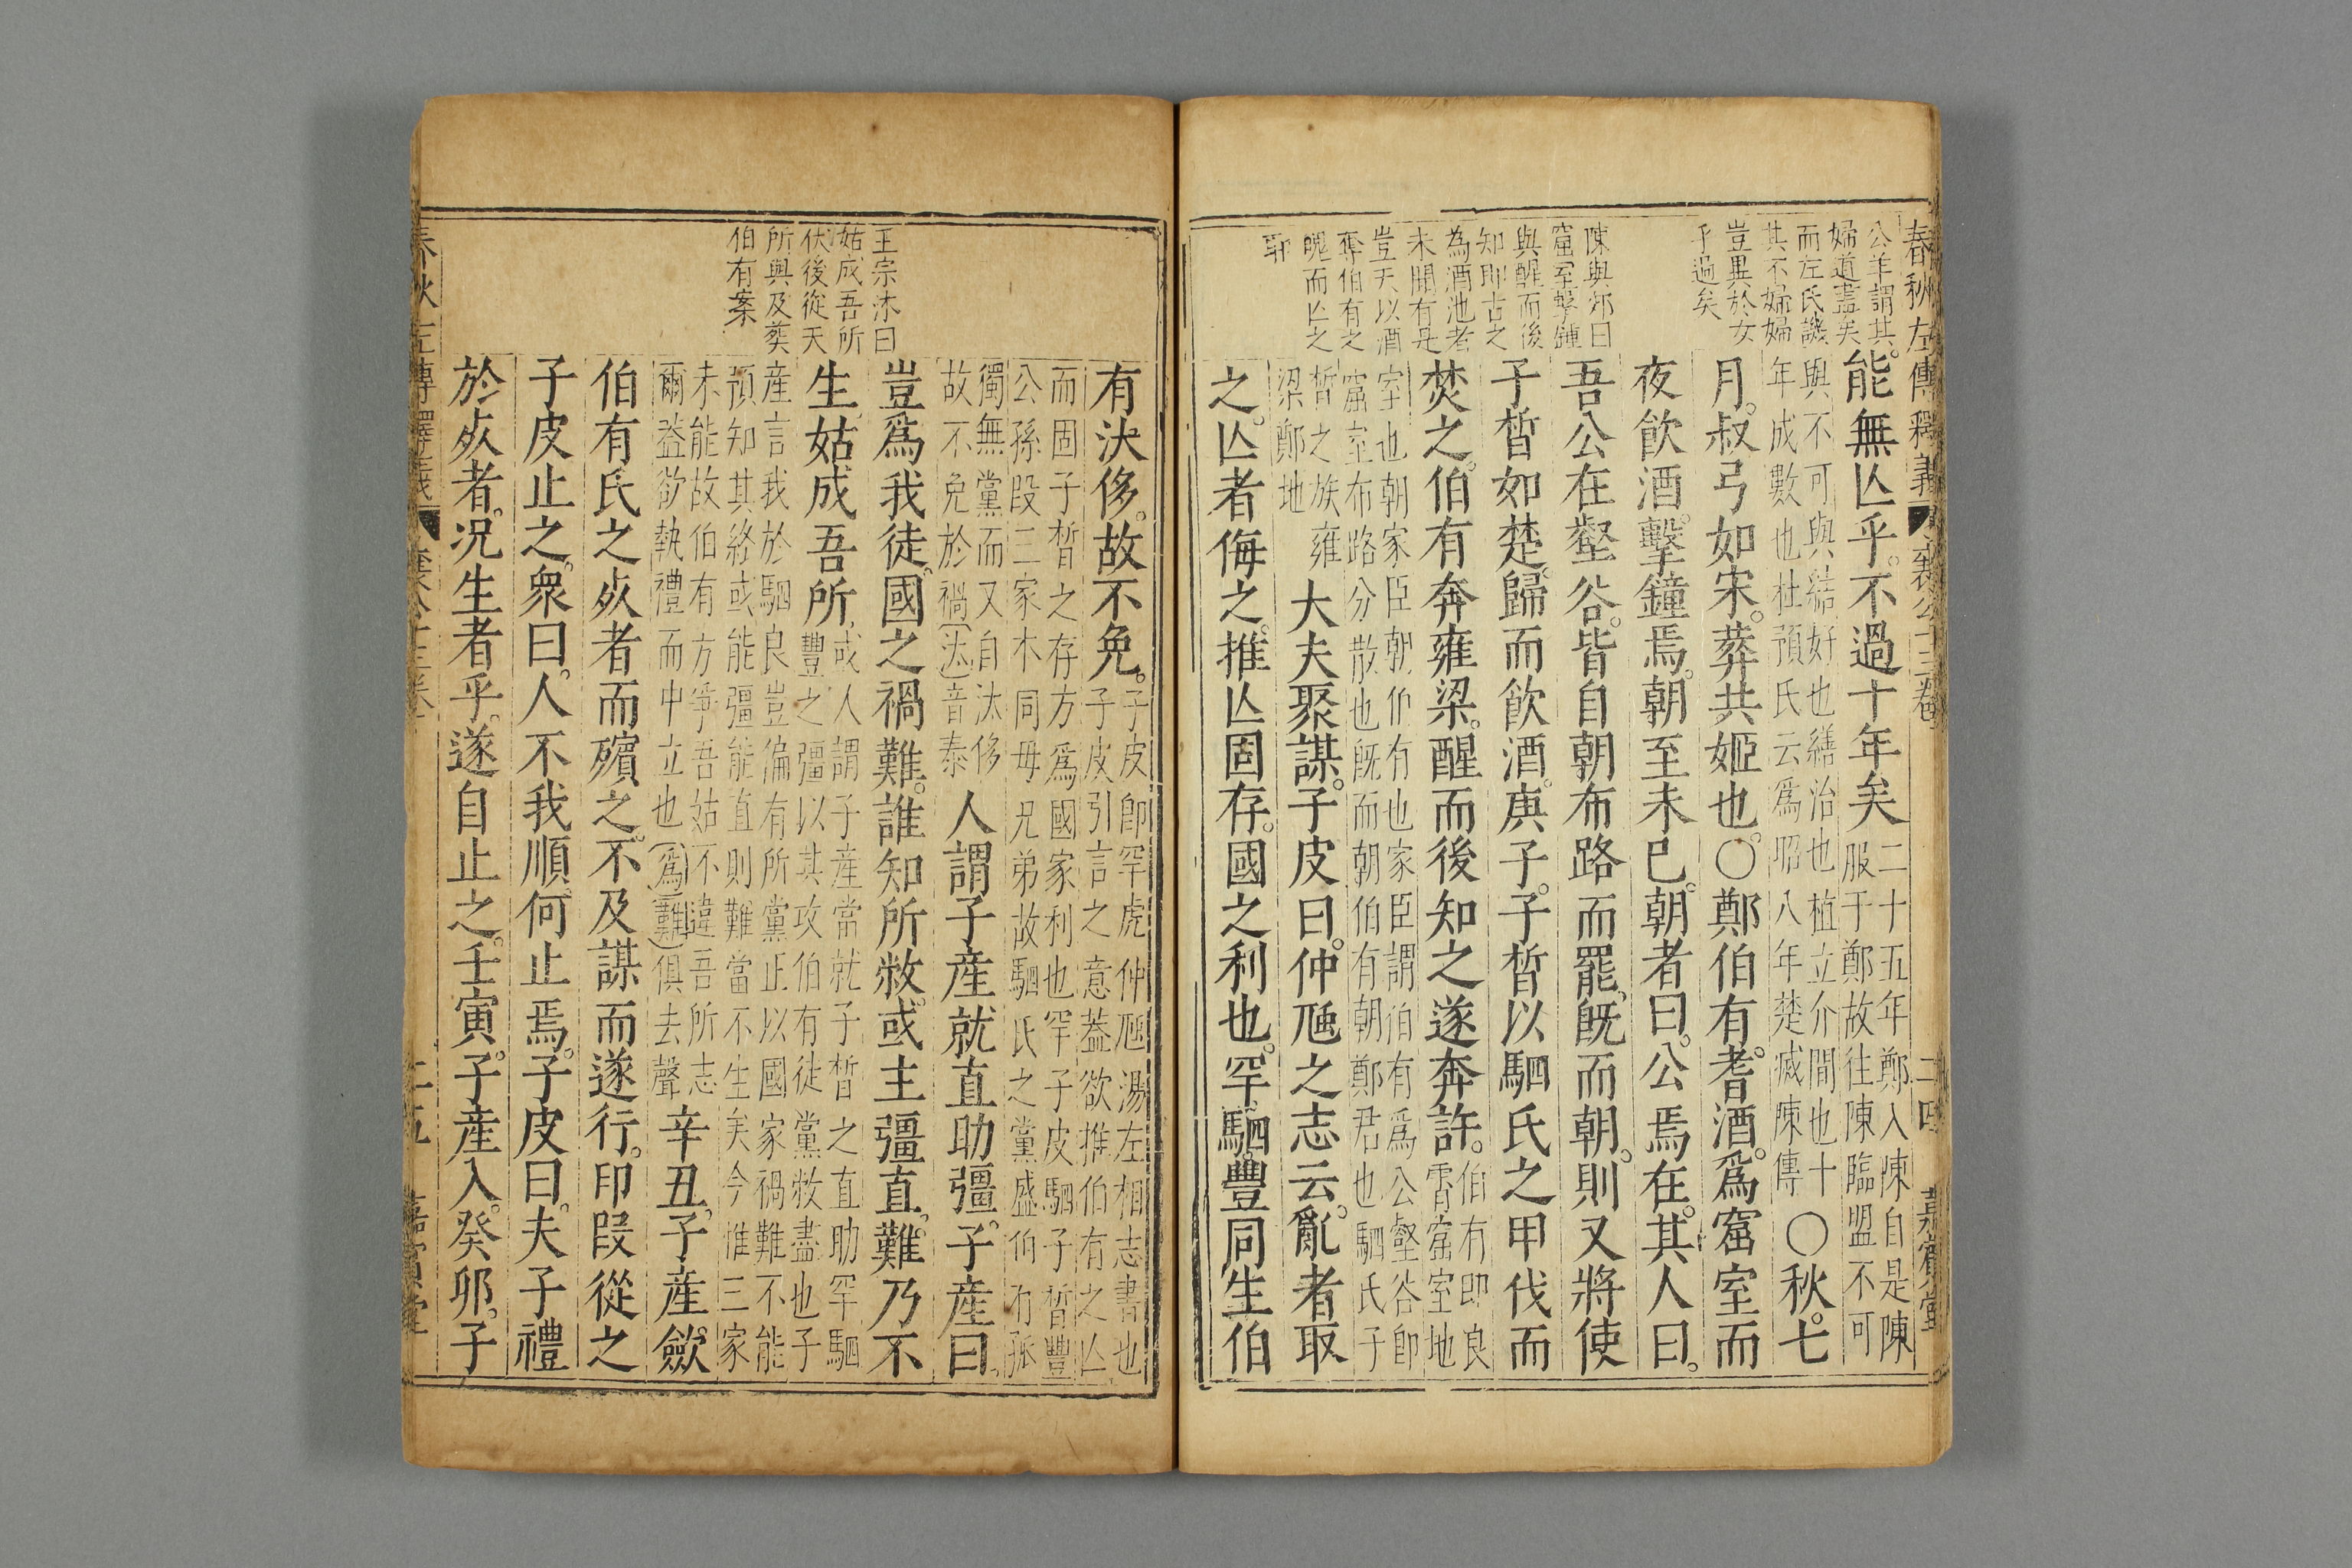 春秋左傳釋義
襄公十三卷
二四
嘉賓堂
公羊謂其
婦道盡矣
而左氏譏
其不婦婦
豈異於女
乎過矣
陳與郊曰
窟室擊鍾
與醒而後
知即古之
為酒池者
未聞有是
豈天以酒
奪伯有之
魄而亾之
耶
能無亾乎不過十年矣
二十五年鄭入陳自是陳
服于鄭故往陳臨盟不可
與不可與結好也繕治也植立介間也十
年成數也杜預氏云爲昭八年楚滅陳傳
〇秋七
月叔弓如宋葬共姬也〇鄭伯有耆酒爲窟室而
夜飲酒擊鐘焉朝至未已朝者曰公焉在其人曰
吾公在壑谷皆自朝布路而罷旣而朝則又將使
子皙如楚歸而飲酒庚子子皙以駟氏之甲伐而
焚之伯有奔雍梁醒而後知之遂奔許
伯有即良
霄窟室地
室也朝家臣朝伯有也家臣謂伯有爲公壑谷卽
窟室布路分散也旣而朝伯有朝鄭君也駟氏子
皙之族雍
梁鄭地
大夫聚謀子皮曰仲虺之志云亂者取
之亾者侮之推亾固存國之利也罕駟豐同生伯
有汰侈故不免
子皮卽罕虎仲虺湯左相志書也
子皮引言之意葢欲推伯有之亾
而固子皙之存方爲國家利也罕子皮駟子皙豐
公孫段三家本同母兄弟故駟氏之黨盛伯有孤
獨無黨而又自汰侈
故不免於禍(汰)音泰
人謂子產就直助彊子產曰
豈爲我徒國之禍難誰知所敝或主彊直難乃不
生姑成吾所
或人謂子產當就子皙之直助罕駟
豐之彊以其攻伯有徒黨敝盡也子
產言我於駟良豈偏有所黨止以國家禍難不能
預知其終或能彊能直則難當不生矣今惟三家
未能故伯有方爭吾姑不違吾所志
爾葢欲執禮而中立也(爲)(難)俱去聲
辛丑子產歛
伯有氏之死者而殯之不及謀而遂行印段從之
子皮止之衆曰人不我順何止焉子皮曰夫子禮
於死者況生者乎遂自止之壬寅子產入癸卯子
王宗沐曰
姑成吾所
伏後從天
所與及葬
伯有案